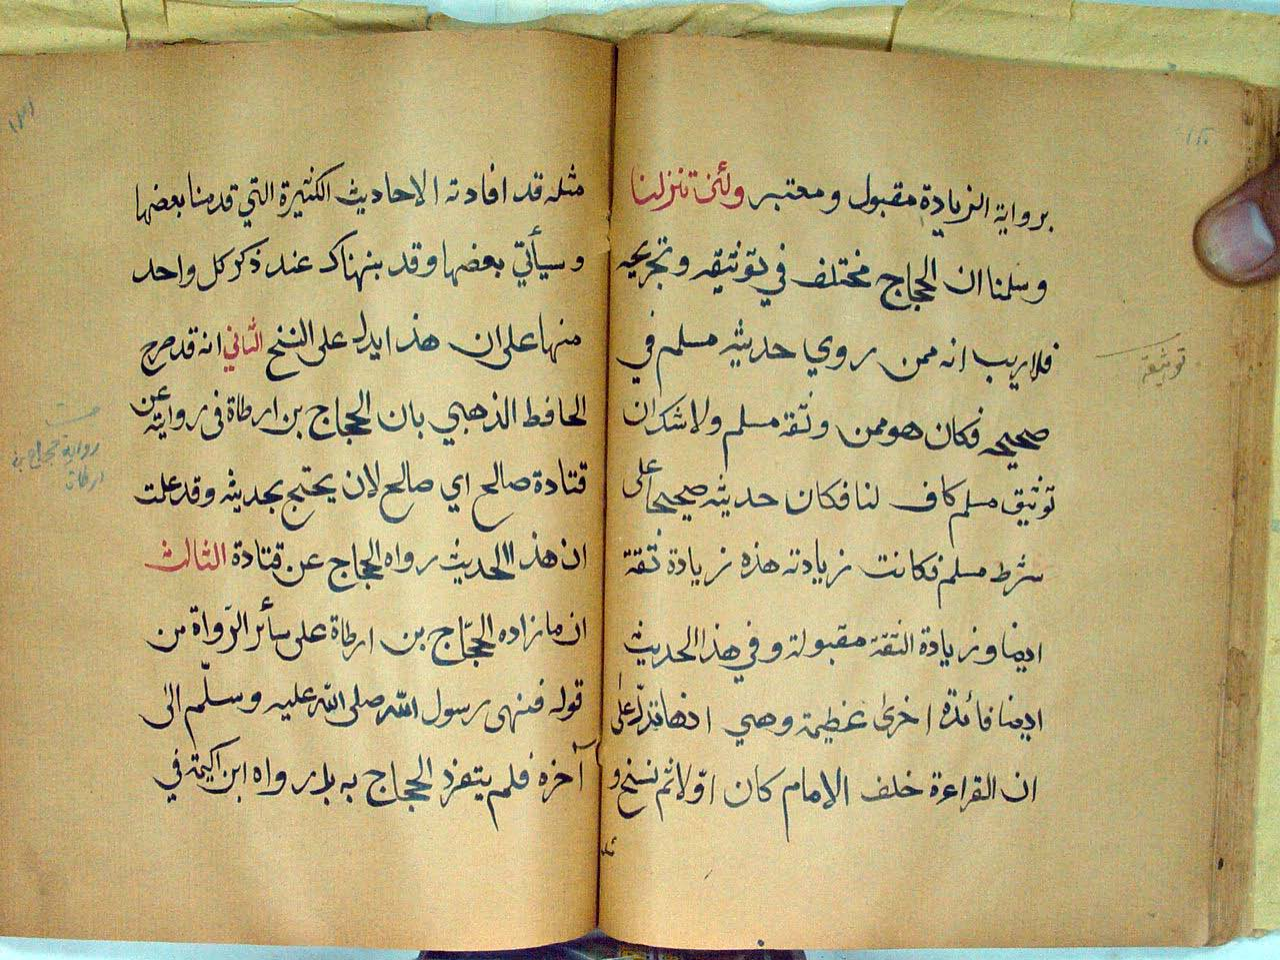 برواية الزيادة مقبول ومعتبر ولئن تنزلنا
وسلمنا ان الحجاج مختلف في توثيقه وتجريحه
فلا ريب انه ممن روي حديثه مسلم في
صحيحه فكان هو ممن وثقه مسلم ولا شك ان
توثيق مسلم كاف لنا فكان حديثه صحيحا على
شرط مسلم فكانت زيادته هذه زيادة ثقة
ايضا وزيادة الثقة مقبولة وفي هذا الحديث
ايضا فائدة اخرى عظيمة وهي انها تدل على
ان القراءة خلف الامام كان اوّلا ثم نسخ و
توثيقه
مثله قد افادته الاحاديث الكثيرة التي قدمنا بعضها
وسيأتي بعضها وقد بنهناك عند ذكر كل واحد
منها على ان هذا يدل على النسخ الثاني انه قد صرح
الحافظ الذهبي بان الحجاج بن ارطاة في روايته عن
قتادة صالح اي صالح لان يحتج بحديثه وقد علمت
ان هذا الحديث رواه الحجاج عن قتادة الثالث
ان ما زاده الحجّاج بن ارطاة على سائر الرّواة من
قوله فنهى رسول الله صلى الله عليه وسلّم الى
آخره فلم يتفرد الحجاج به بل رواه ابن اكيمة في
رواية حجاج بن
ارطاة